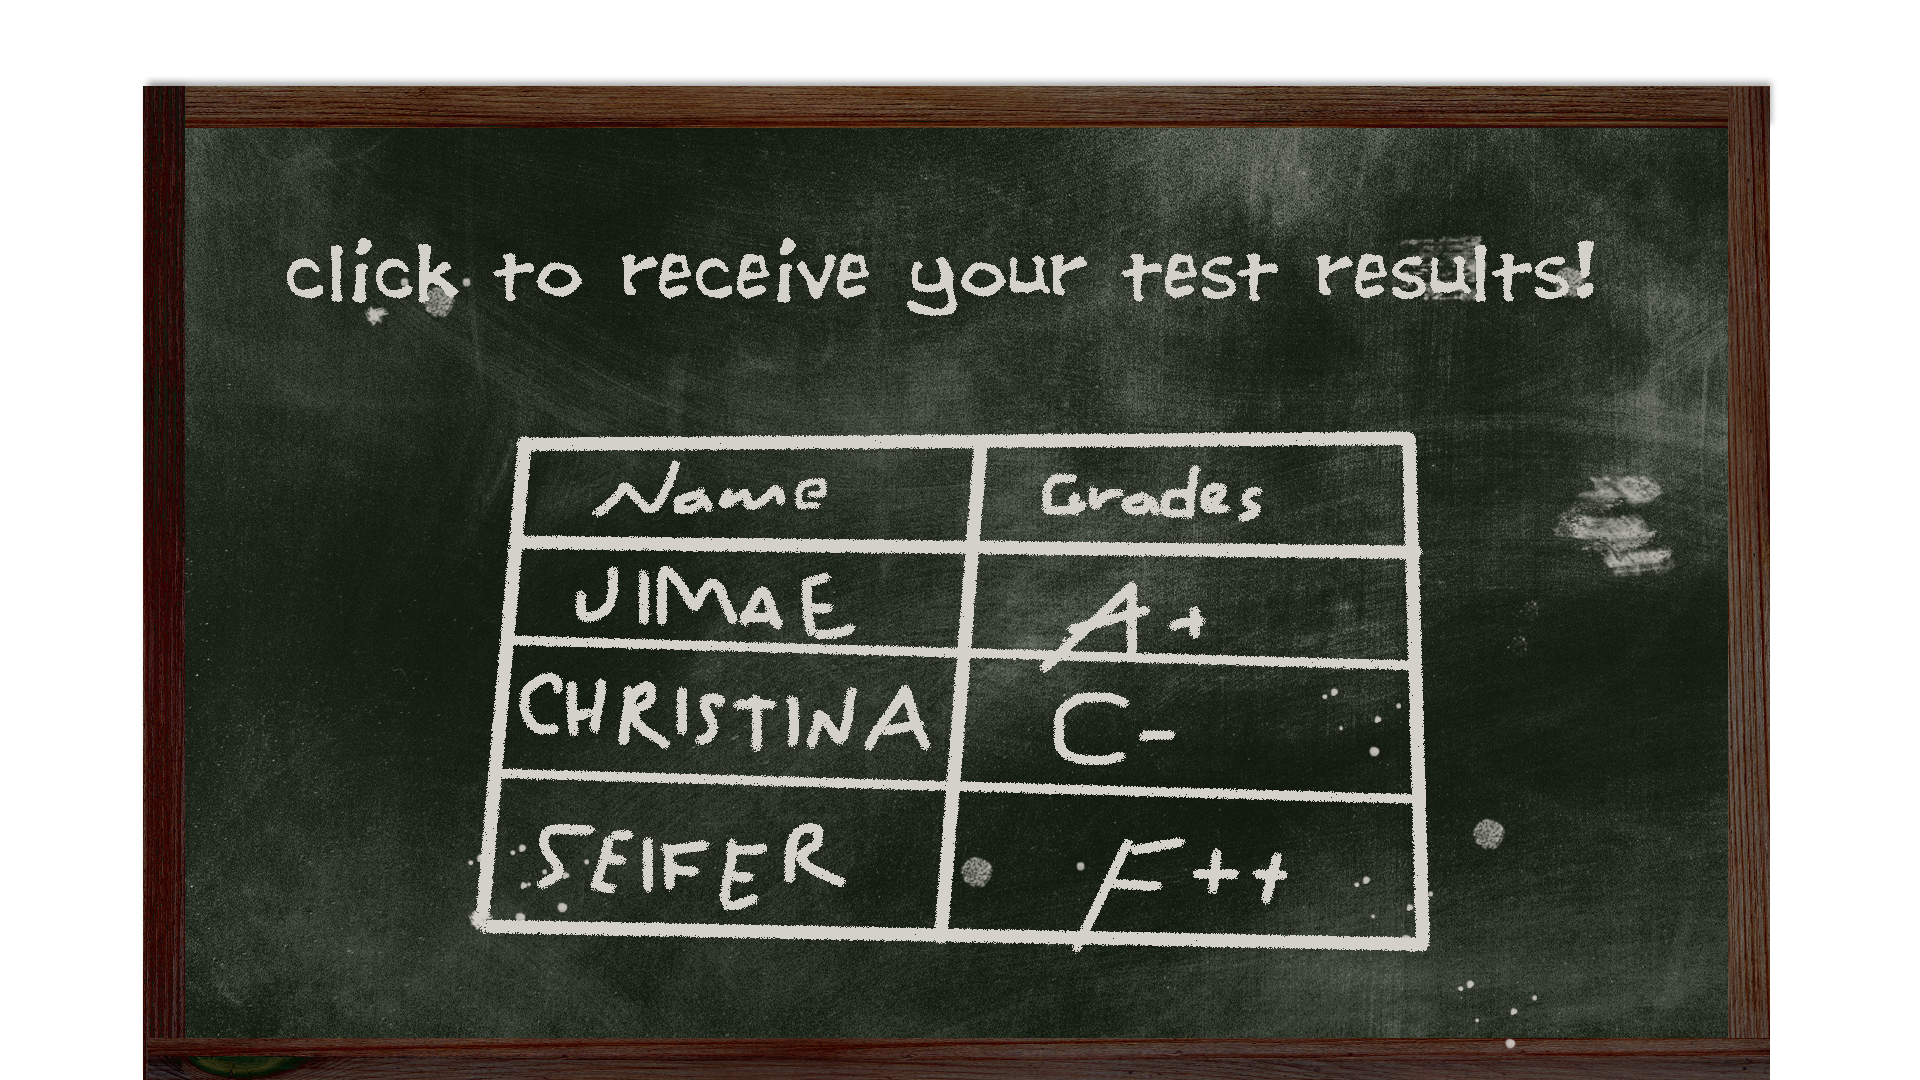 click to receive your test results!
Name Grades
JIMAE A+
CHRISTINA C-
SEIFER F++